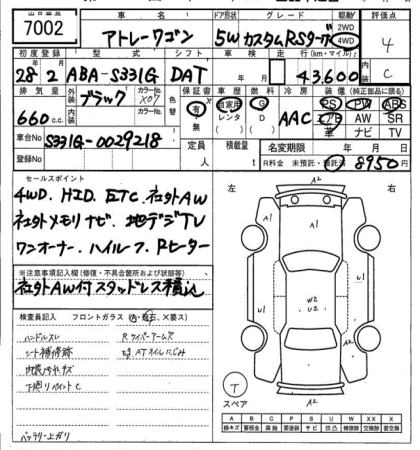 出品番号 車名 ドア形状 グレード 駆動 評価点
7002 アトレーワゴン 5W カスタムRSターボ 2WD 4WD 4
初度登録 型式 シフト 車検 走行(km・マイル) 内装
28年 2月 ABA-S331G DAT 年 月 43,600 C
排気量 外装 カラーNo. 色替 保証書 車歴 燃料 冷房 装備(純正部品に限る)
660 c.c. ブラック X07 有 無 自家用 レンタ G D AAC PS PW ABS
エアB AW SR
内装 カラーNo. 革 ナビ TV
車台No. S331G-0029218 定員 積載量 名変期限 年 月 日
登録No. 人 t R料金 未預託・預託済 8950円
セールスポイント
4WD. HID. ETC. 社外AW
社外メモリナビ. 地デジTV
ワンオーナー. ハイルーフ. Rヒーター
※注意事項記入欄(修復・不具合箇所および状態等)
社外AW付スタッドレス積込
検査員記入 フロントガラス(A・飛石、X要ス)
ハンドルスレ Rワイパーアームサ
シート補修跡 ATオイルにじみ
内装汚れキズ
下廻りペイントC
バッテリー上ガリ
左 右
A2
A1 A1
U1 W2 U1
U2
A2 A2
T
スペア
A B C P S U W X XX
線キズ 要板金 腐蝕 要塗装 サビ 凹凸 補修跡 要交換 交換済